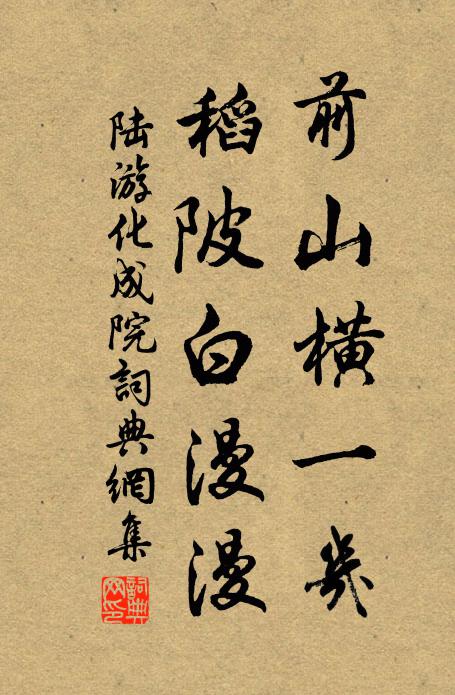 前山橫一几
稻陂白漫漫
陆游化成院詞典網集
詞典網印